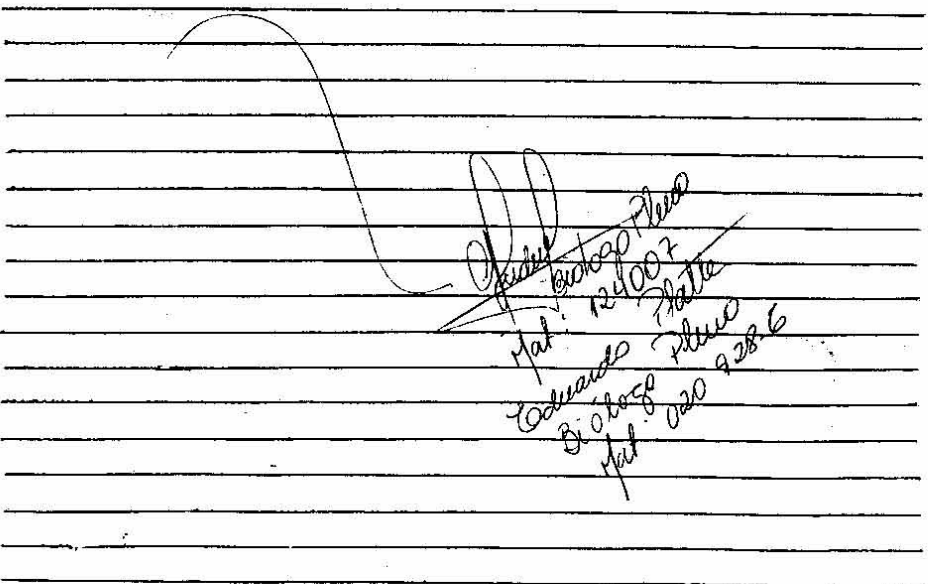 Biólogo Pleno
Mat: 124007
Eduardo Platte
Biólogo Pleno
Mat: 020 928-6